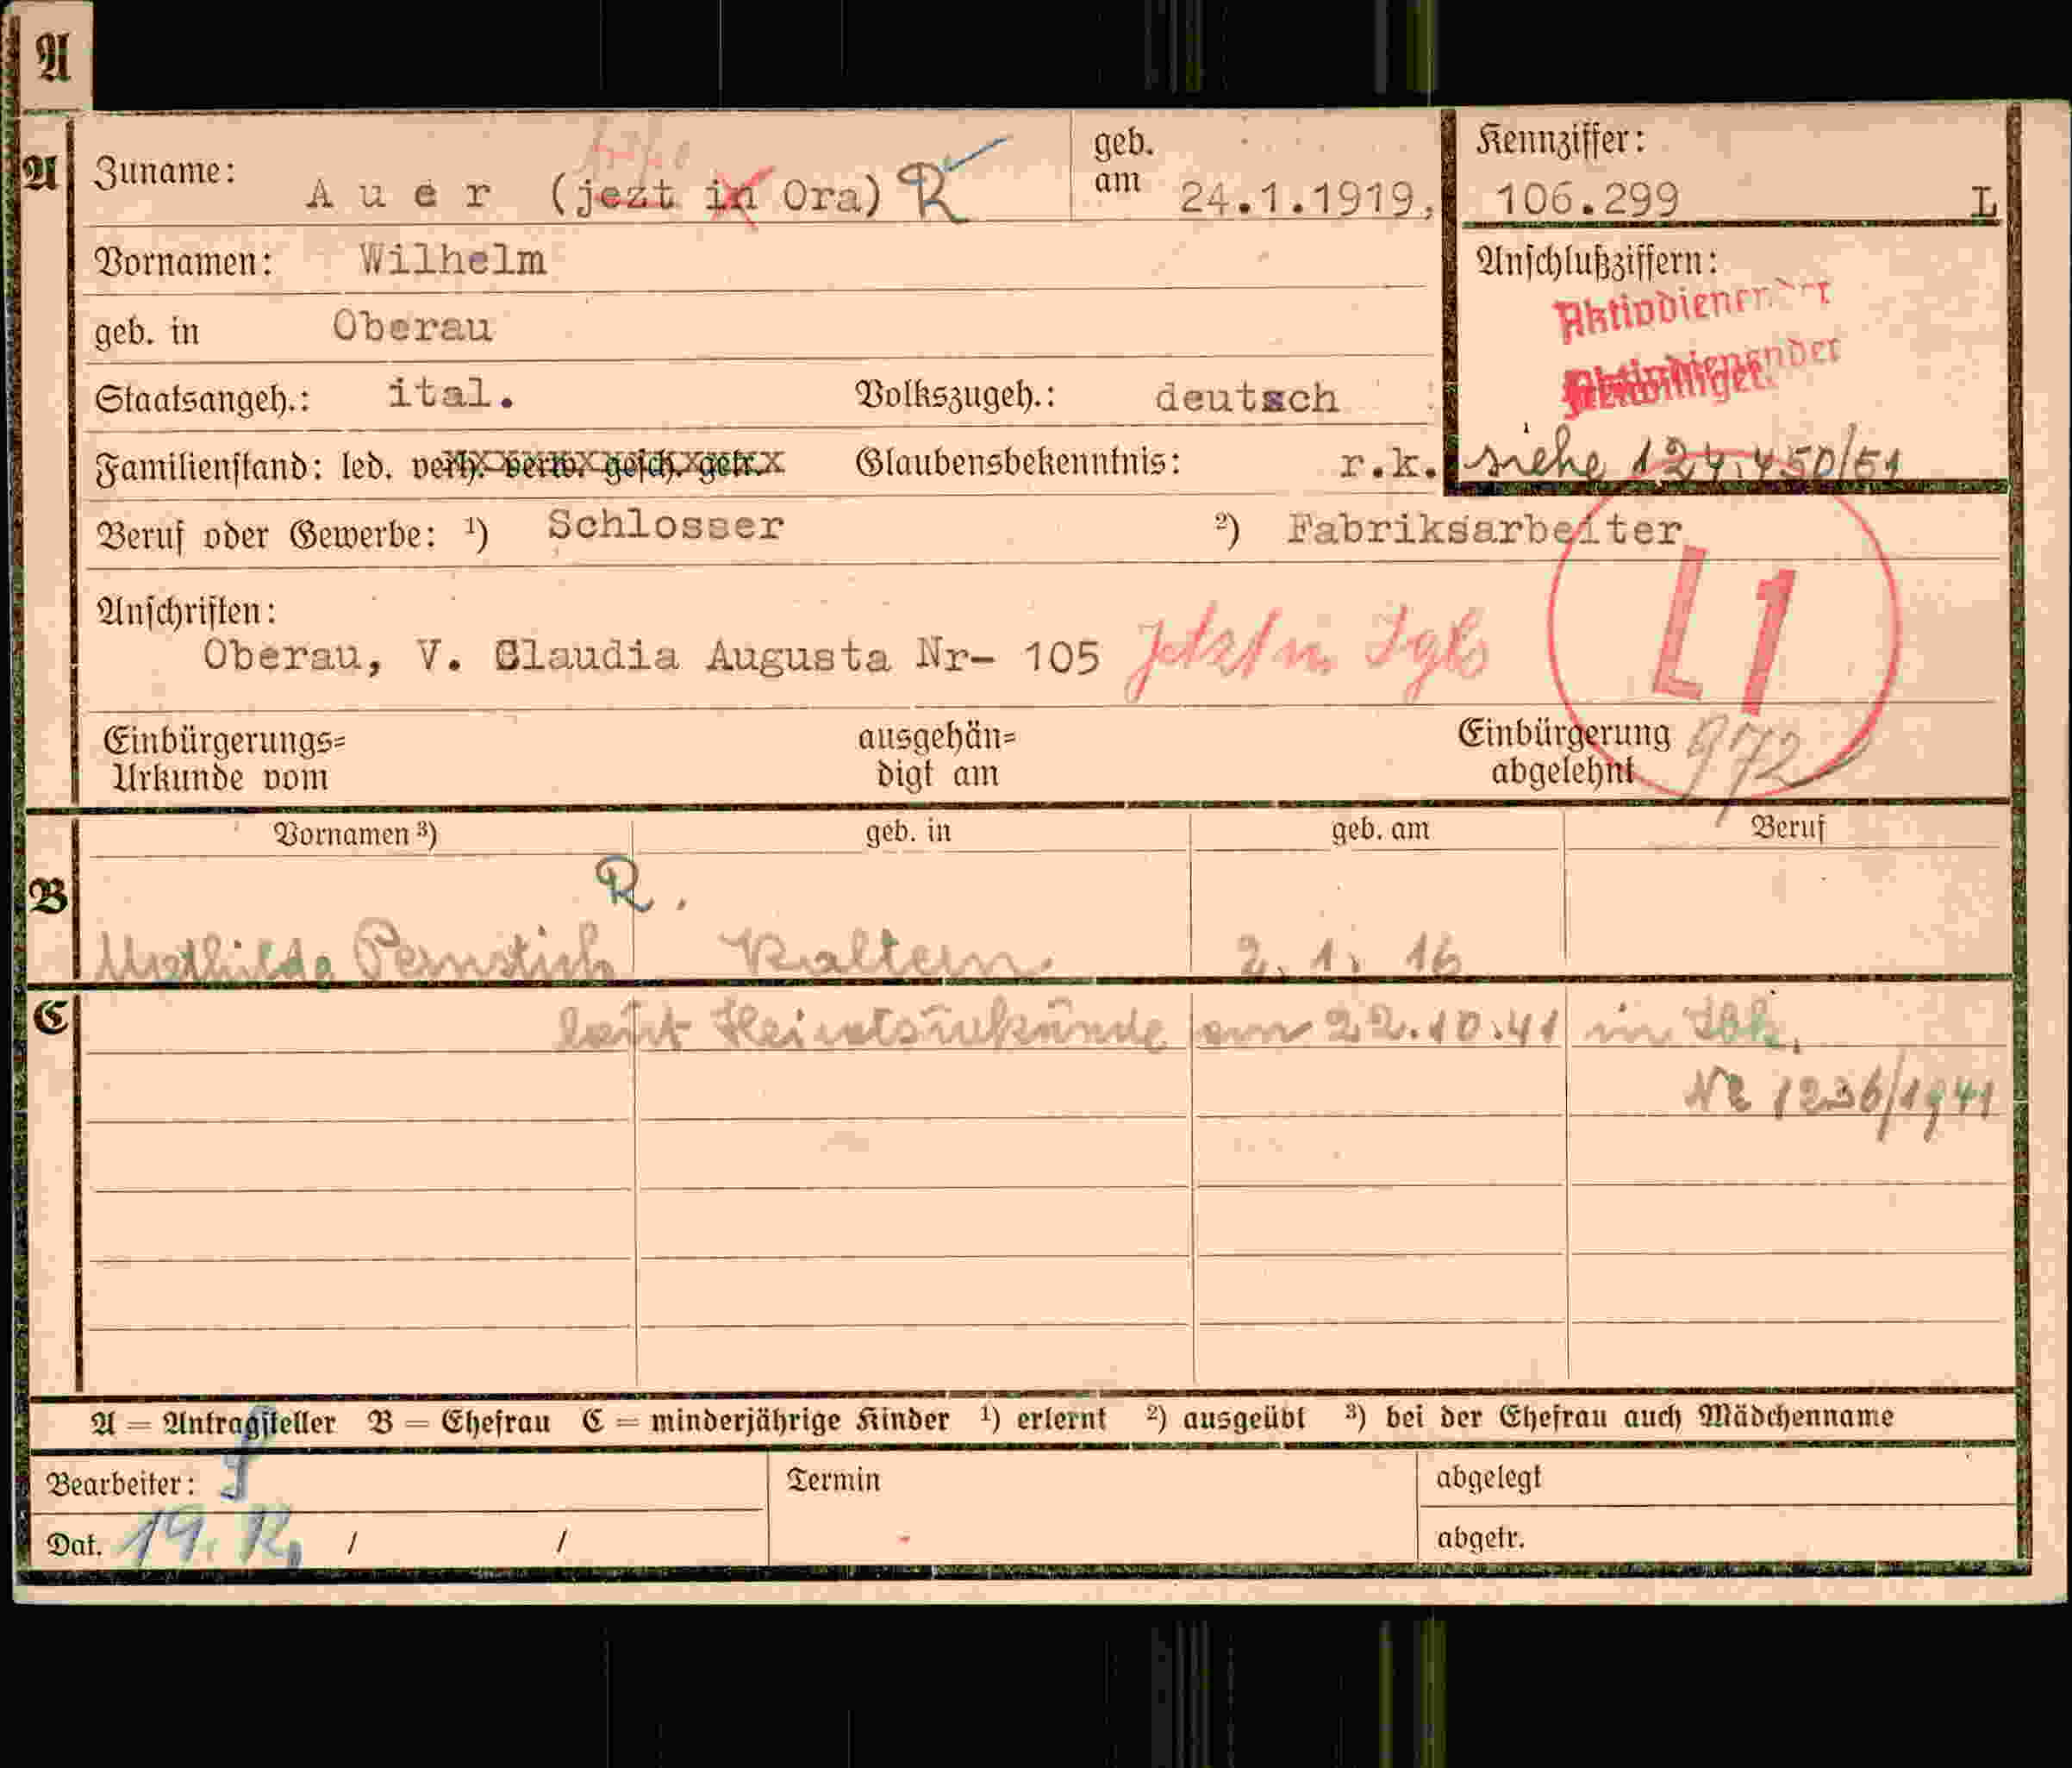 A
A
Zuname: Auer (jezt in Ora) R
geb. am 24.1.1919,
Kennziffer: 106.299 L
Vornamen: Wilhelm
Anschlußziffern:
geb. in Oberau
Aktivdienender
Staatsangeh.: ital. Volkszugeh.: deutsch
Familienstand: led. verh. verw. gesch. getr. Glaubensbekenntnis: r.k.
siehe 124.450/51
Beruf oder Gewerbe: ¹) Schlosser ²) Fabriksarbeiter
L1
Anschriften:
Oberau, V. Claudia Augusta Nr- 105 Jetzt in Igls
Einbürgerungs= Urkunde vom
ausgehän= digt am
Einbürgerung abgelehnt
972
Vornamen ³) geb. in geb. am Beruf
B
R.
Mathilde Pernstich Kaltern. 2.1.16
C
laut Heiratsurkunde am 22.10.41 in Ibk.
Nr 1236/1941
A = Antragsteller B = Ehefrau C = minderjährige Kinder ¹) erlernt ²) ausgeübt ³) bei der Ehefrau auch Mädchenname
Bearbeiter:
Termin
abgelegt
Dat. 19. / /
abgetr.